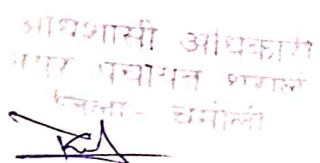 अधिशासी अधिकारी
नगर पंचायत थराली
जिला - चमोली